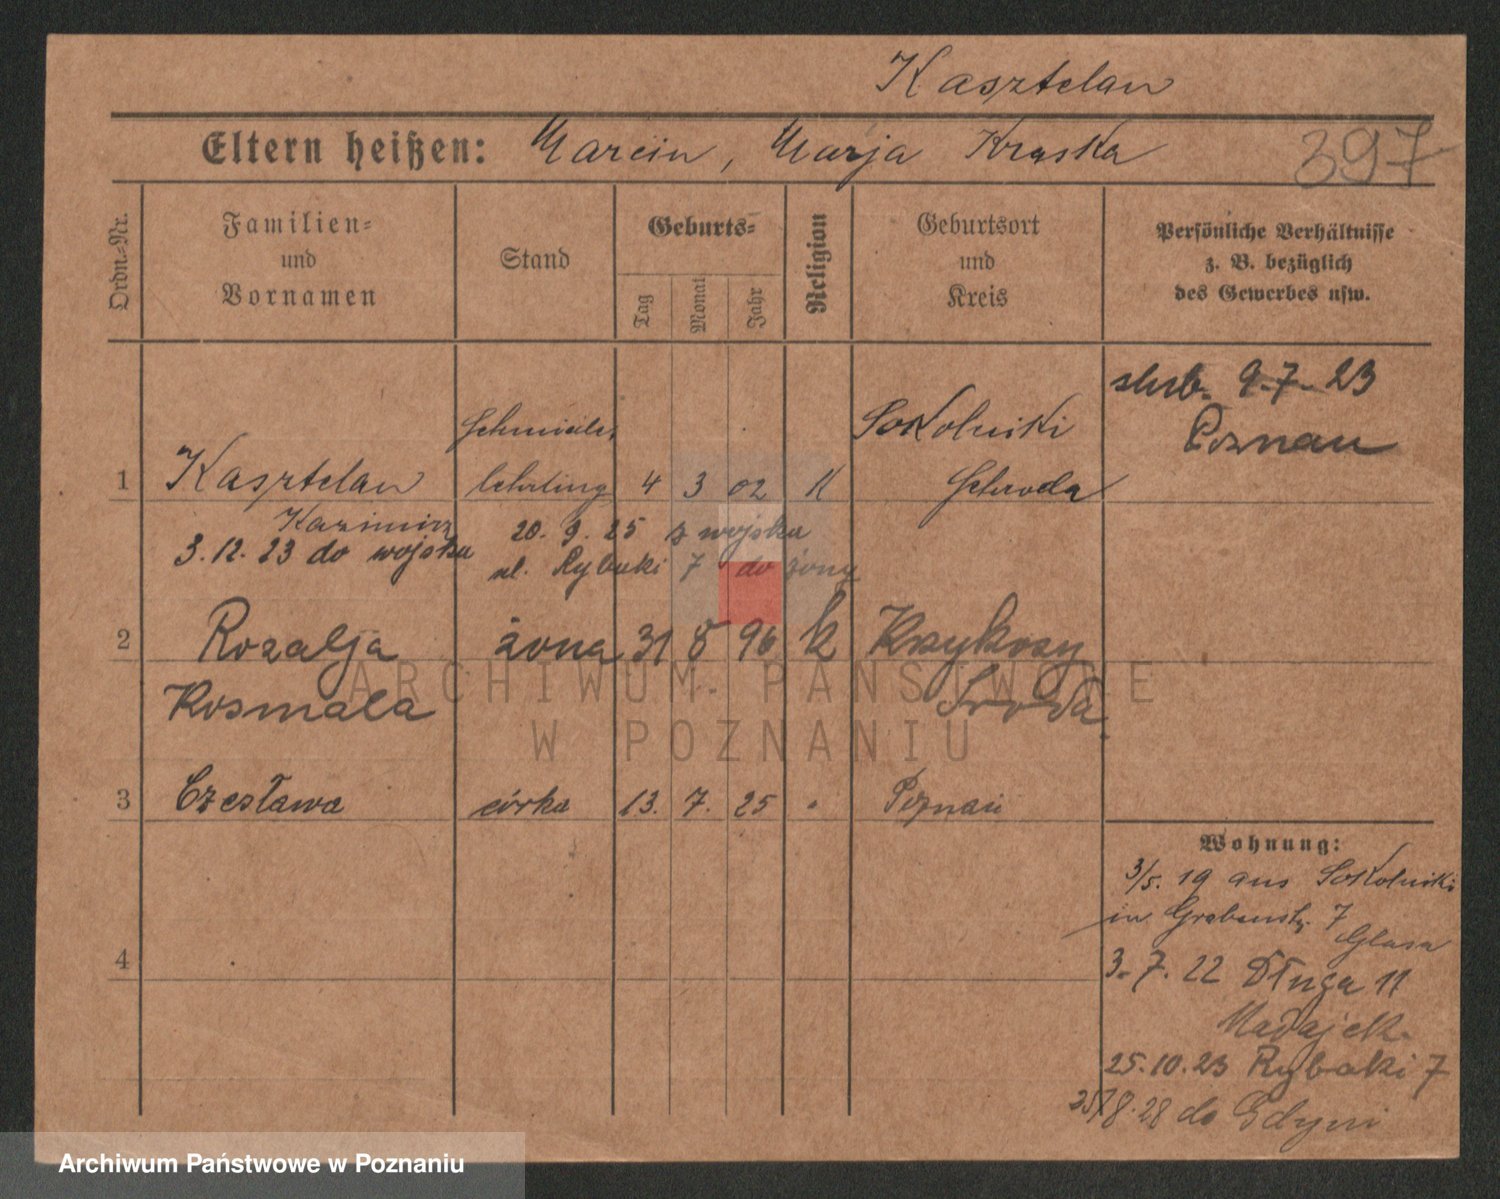 Kasztelan
Eltern heißen: Marcin, Marja Kraska
397
Ordn.-Nr.
Familien-
und
Vornamen
Stand
Geburts-
Tag
Monat
Jahr
Religion
Geburtsort
und
Kreis
Persönliche Verhältnisse
z. B. bezüglich
des Gewerbes usw.
ślub. 9.7.23
Poznań
1
Kasztelan
Kazimierz
Schmiede-
lehrling
4 3 02 K
Sokolniki
Schroda
3.12.23 do wojska
20.9.25 z wojska
ul. Rybaki 7 do żony
2
Rozalja
Kosmala
żona
31 8 96 k
Krzykosy
Środa
3 Czesława córka 13. 7. 25 " Poznań
4
Wohnung:
3/5. 19 aus Sokolniki
in Grabenstr. 7
3.7.22 Długa 11
Madajek
25.10.23 Rybaki 7
25/8.28 do Gdyni
ARCHIWUM PAŃSTWOWE
W POZNANIU
Archiwum Państwowe w Poznaniu